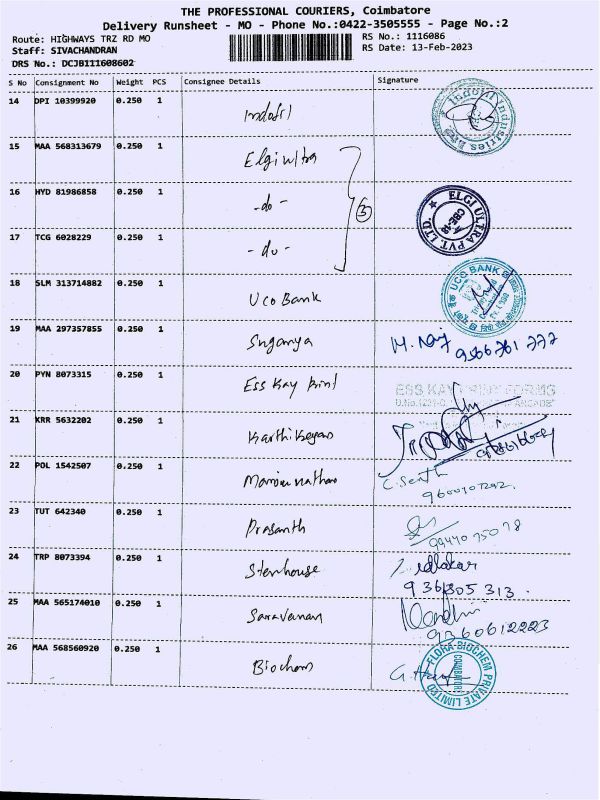 THE PROFESSIONAL COURIERS, Coimbatore
Delivery Runsheet - MO - Phone No.:0422-3505555 - Page No.:2
Route: HIGHWAYS TRZ RD MO
RS No.: 1116086
Staff: SIVACHANDRAN
RS Date: 13-Feb-2023
DRS No.: DCJB111608602
S No Consignment No Weight PCS Consignee Details Signature
14 DPI 10399920 0.250 1 Indofil
15 MAA 568313679 0.250 1 Elgi ultra
16 HYD 81986858 0.250 1 -do- 3 ELGI ULTRA PVT. LTD. CBE-18
17 TCG 6028229 0.250 1 -do-
18 SLM 313714882 0.250 1 UCO Bank UCO BANK
19 MAA 297357855 0.250 1 Suganya
20 PYN 8073315 0.250 1 Ess Kay Print ESS KAY PRINT FORMS
21 KRR 5632202 0.250 1 Karthikeyan
22 POL 1542507 0.250 1 C. Senth
23 TUT 642340 0.250 1 Prasanth
24 TRP 8073394 0.250 1 Stenhouse
936305 313
25 MAA 565174010 0.250 1 Saravanan Nandhini
9360612223
26 MAA 568560920 0.250 1 Biochem FLORA BIOCHEM PRIVATE LIMITED COIMBATORE